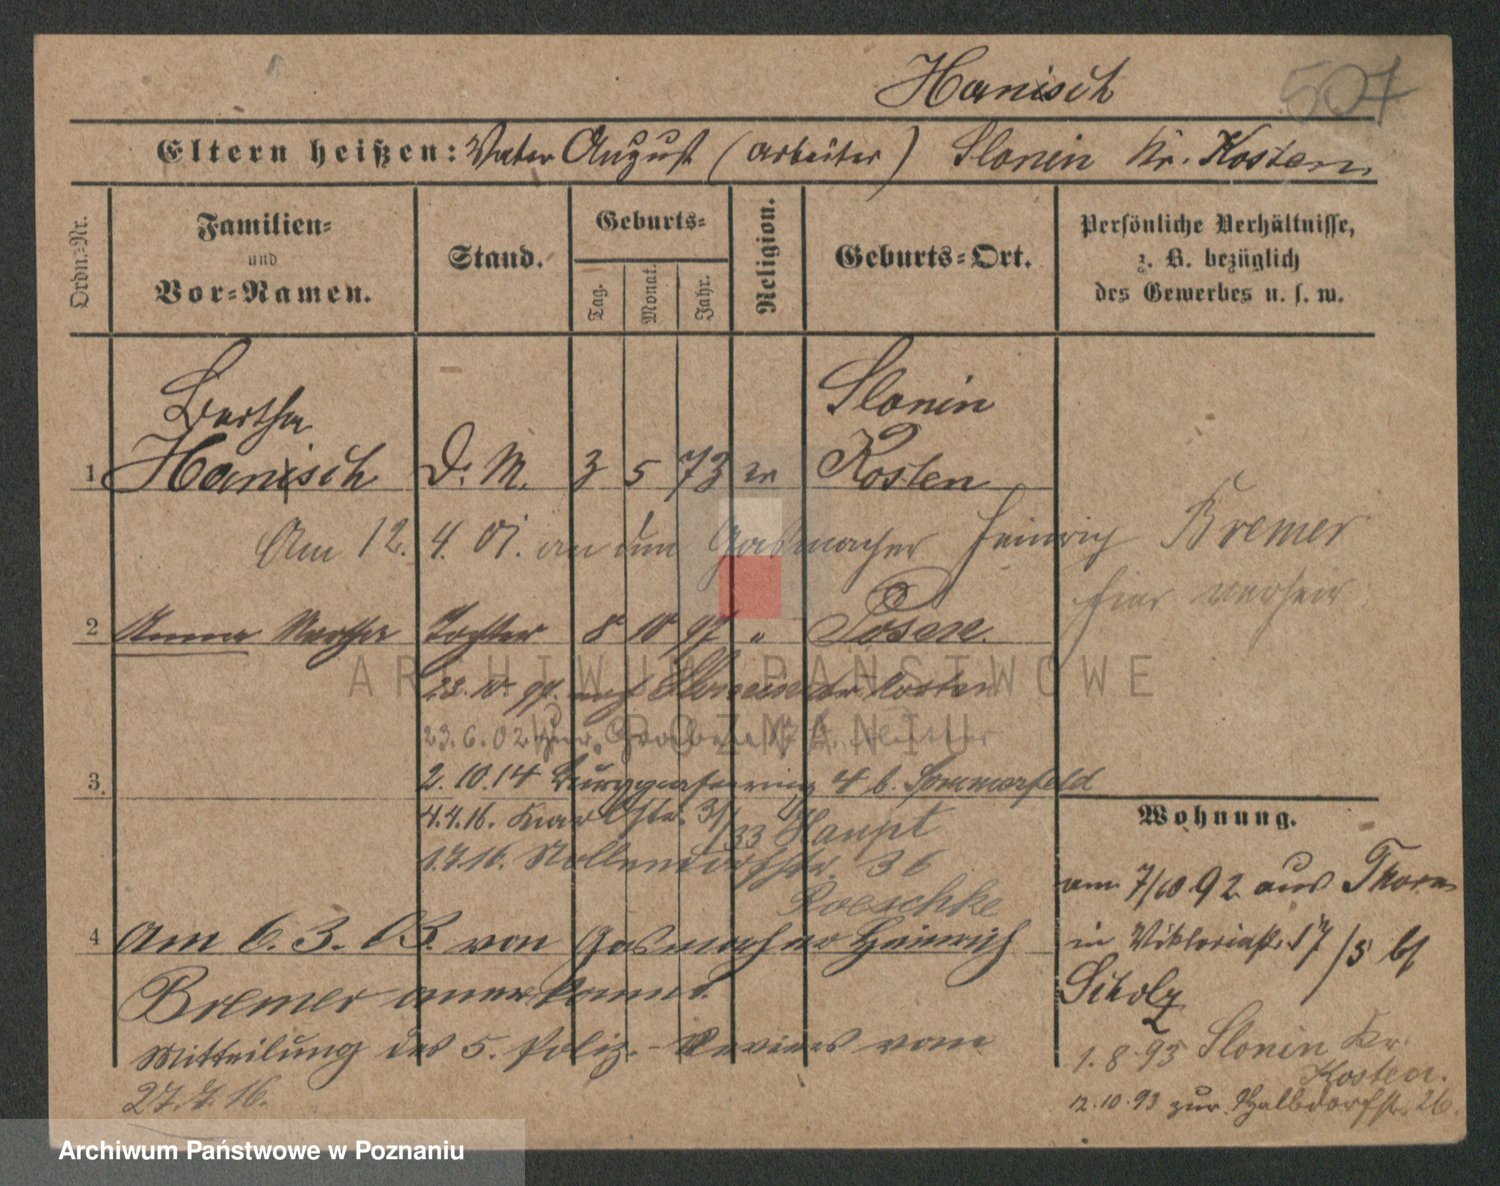 Hanisch
507
Eltern heißen: Vater August (Arbeiter) Slonin Kr. Kosten.
Ordn.=Nr.
Familien=
und
Vor=Namen.
Stand.
Geburts=
Tag.
Monat.
Jahr.
Religion.
Geburts=Ort.
Persönliche Verhältnisse,
z. B. bezüglich
des Gewerbes u. s. w.
Bertha
Slonin
1 Hanisch D. M. 3 5 73 Kosten
Am 12. 4. 01. an den Gasmacher Heinrich Bremer
hier verheir
2 Anna Martha Tochter 8 10 97 " Posen.
23. 10. 97. auf Slonin Kr Kosten
23. 6. 02
3.
2. 10. 14 4 b. Sommerfeld
4.4.16. 31/33 Haupt
1.7.16. Nollendorfstr. 36
Roeschke
4 Am 6. 3. 03. von Gasmacher Heinrich
Bremer anerkannt.
Mitteilung des 5. Poliz.-Reviers vom
27. 7. 16.
Wohnung.
am 7/10 92 aus Thorn
in Viktoriastr. 17 /3 bf
Scholz
1. 8. 93 Slonin Kr.
Kosten.
12. 10. 93 zur Halbdorfstr. 26.
ARCHIWUM PAŃSTWOWE
W POZNANIU
Archiwum Państwowe w Poznaniu